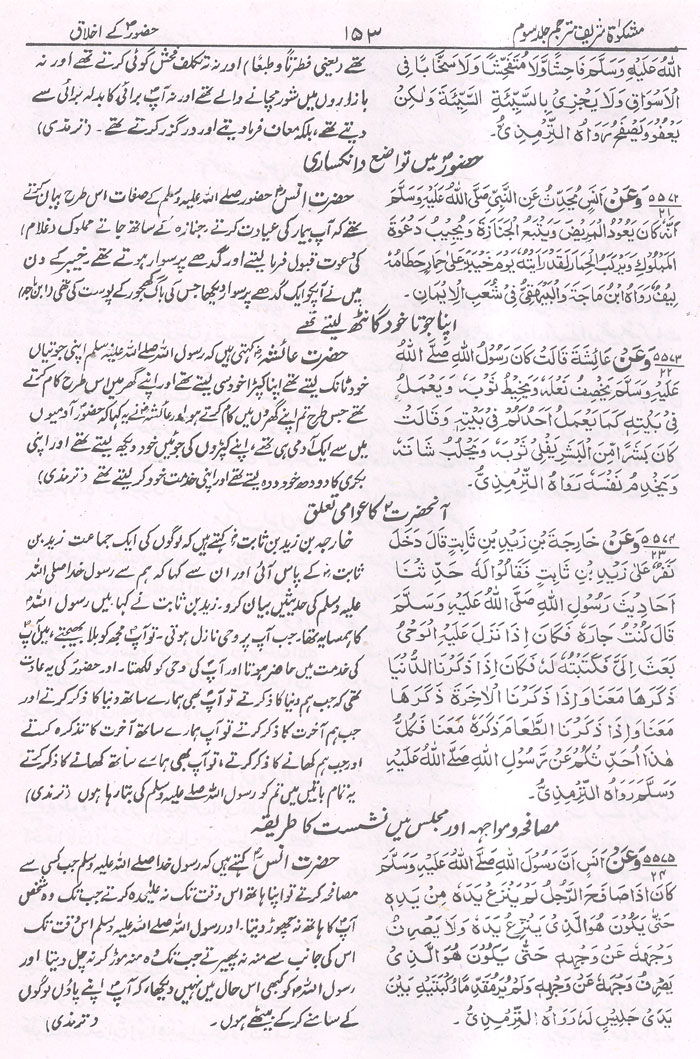 مشکوٰۃ شریف مترجم جلد سوم
۱۵۳
حضورؐ کے اخلاق
اللهِ عَلَيْهِ وَسَلَّمَ فَاحِشًا وَّلَا مُتَفَحِّشًا وَّلَا سَخَّابًا فِي
الْاَسْوَاقِ وَلَا يَجْزِيْ بِالسَّيِّئَةِ السَّيِّئَةَ وَلٰكِنْ
يَعْفُوْ وَيَصْفَحُ رَوَاهُ التِّرْمِذِيُّ۔
تھے (یعنی فطرتًا و طبعًا) اور نہ بہ تکلف فحش گوئی کرتے تھے اور نہ
بازاروں میں شور مچانے والے تھے اور نہ آپؐ برائی کا بدلہ برائی سے
دیتے تھے، بلکہ معاف فرما دیتے اور درگزر کرتے تھے۔ (ترمذی)
حضورؐ میں تواضع و انکساری
۵۵۷۲ ۲۱ وَعَنْ اَنَسٍ يُحَدِّثُ عَنِ النَّبِيِّ صَلَّى اللهُ عَلَيْهِ وَسَلَّمَ
اَنَّهٗ كَانَ يَعُوْدُ الْمَرِيْضَ وَيَتْبَعُ الْجَنَازَةَ وَيُجِيْبُ دَعْوَةَ
الْمَمْلُوْكِ وَيَرْكَبُ الْحِمَارَ لَقَدْ رَاَيْتُهٗ يَوْمَ خَيْبَرَ عَلٰى حِمَارٍ خِطَامُهٗ
لِيْفٌ رَوَاهُ ابْنُ مَاجَةَ وَالْبَيْهَقِيُّ فِيْ شُعَبِ الْاِيْمَانِ۔
حضرت انسؓ حضور صلے اللہ علیہ وسلم کے صفات اس طرح بیان کرتے
تھے کہ آپ بیمار کی عیادت کرتے، جنازہ کے ساتھ جاتے مملوک (غلام)
کی دعوت قبول فرما لیتے اور گدھے پر سوار ہوتے تھے۔ خیبر کے دن
میں نے آپکو ایک گدھے پر سوار دیکھا جس کی باگ کھجور کے پوست کی تھی (ابن ماجہ)
اپنا جوتا خود گانٹھ لیتے تھے
۵۵۷۳ ۲۲ وَعَنْ عَائِشَةَ قَالَتْ كَانَ رَسُوْلُ اللهِ صَلَّى اللهُ
عَلَيْهِ وَسَلَّمَ يَخْصِفُ نَعْلَهٗ وَيَخِيْطُ ثَوْبَهٗ وَيَعْمَلُ
فِيْ بَيْتِهٖ كَمَا يَعْمَلُ اَحَدُكُمْ فِيْ بَيْتِهٖ وَقَالَتْ
كَانَ بَشَرًا مِّنَ الْبَشَرِ يَفْلِيْ ثَوْبَهٗ وَيَحْلُبُ شَاتَهٗ
وَيَخْدِمُ نَفْسَهٗ رَوَاهُ التِّرْمِذِيُّ۔
حضرت عائشہؓ کہتی ہیں کہ رسول اللہ صلے اللہ علیہ وسلم اپنی جوتیاں
خود ٹانک لیتے تھے اپنا کپڑا خود سی لیتے تھے اور اپنے گھر میں اس طرح کام کرتے
تھے جس طرح تم اپنے گھروں میں کام کرتے ہو اور عائشہؓ نے یہ کہا کہ حضورؐ آدمیوں
میں سے ایک آدمی ہی تھے، اپنے کپڑوں کی جوئیں خود دیکھ لیتے تھے اور اپنی
بکری کا دودھ خود دوہ لیتے تھے اور اپنی خدمت خود کر لیتے تھے (ترمذی)
آنحضرتؐ کا عوامی تعلق
۵۵۷۴ ۲۳ وَعَنْ خَارِجَةَ بْنِ زَيْدِ بْنِ ثَابِتٍ قَالَ دَخَلَ
نَفَرٌ عَلٰى زَيْدِ بْنِ ثَابِتٍ فَقَالُوْا لَهٗ حَدِّثْنَا
اَحَادِيْثَ رَسُوْلِ اللهِ صَلَّى اللهُ عَلَيْهِ وَسَلَّمَ
قَالَ كُنْتُ جَارَهٗ فَكَانَ اِذَا نَزَلَ عَلَيْهِ الْوَحْيُ
بَعَثَ اِلَيَّ فَكَتَبْتُهٗ لَهٗ فَكَانَ اِذَا ذَكَرْنَا الدُّنْيَا
ذَكَرَهَا مَعَنَا وَاِذَا ذَكَرْنَا الْاٰخِرَةَ ذَكَرَهَا
مَعَنَا وَاِذَا ذَكَرْنَا الطَّعَامَ ذَكَرَهٗ مَعَنَا فَكُلُّ
هٰذَا اُحَدِّثُكُمْ عَنْ رَّسُوْلِ اللهِ صَلَّى اللهُ عَلَيْهِ
وَسَلَّمَ رَوَاهُ التِّرْمِذِيُّ۔
خارجہ بن زید بن ثابتؓ کہتے ہیں کہ لوگوں کی ایک جماعت زید بن
ثابتؓ کے پاس آئی اور ان سے کہا کہ ہم سے رسول خدا صلی اللہ
علیہ وسلم کی حدیثیں بیان کرو۔ زید بن ثابت نے کہا میں رسول اللہؐ
کا ہمسایہ تھا۔ جب آپ پر وحی نازل ہوتی۔ تو آپؐ مجھ کو بلا بھیجتے، میں آپؐ
کی خدمت میں حاضر ہوتا اور آپؐ کی وحی کو لکھتا۔ اور حضورؐ کی یہ عادت
تھی کہ جب ہم دنیا کا ذکر کرتے تو آپؐ بھی ہمارے ساتھ دنیا کا ذکر کرتے اور
جب ہم آخرت کا ذکر کرتے تو آپؐ ہمارے ساتھ آخرت کا تذکرہ کرتے
اور جب ہم کھانے کا ذکر کرتے، تو آپؐ بھی ہمارے ساتھ کھانے کا ذکر کرتے
یہ تمام باتیں میں تم کو رسول اللہ صلے اللہ علیہ وسلم کی بتا رہا ہوں (ترمذی)
مصافحہ و مواجہہ اور مجلس میں نشست کا طریقہ
۵۵۷۵ ۲۴ وَعَنْ اَنَسٍ اَنَّ رَسُوْلَ اللهِ صَلَّى اللهُ عَلَيْهِ وَسَلَّمَ
كَانَ اِذَا صَافَحَ الرَّجُلَ لَمْ يَنْزِعْ يَدَهٗ مِنْ يَدِهٖ
حَتّٰى يَكُوْنَ هُوَ الَّذِيْ يَنْزِعُ يَدَهٗ وَلَا يَصْرِفُ
وَجْهَهٗ عَنْ وَجْهِهٖ حَتّٰى يَكُوْنَ هُوَ الَّذِيْ
يَصْرِفُ وَجْهَهٗ عَنْ وَجْهِهٖ وَلَمْ يُرَ مُقَدِّمًا رُكْبَتَيْهِ بَيْنَ
يَدَيْ جَلِيْسٍ لَهٗ رَوَاهُ التِّرْمِذِيُّ۔
حضرت انسؓ کہتے ہیں کہ رسول خدا صلے اللہ علیہ وسلم جب کسی سے
مصافحہ کرتے تو اپنا ہاتھ اس وقت تک نہ علیٰحدہ کرتے جب تک وہ شخص
آپؐ کا ہاتھ نہ چھوڑ دیتا۔ اور رسول اللہ صلے اللہ علیہ وسلم اس وقت تک
اس کی جانب سے منہ نہ پھیرتے جب تک وہ منہ موڑ کر نہ چل دیتا اور
رسول اللہؐ کو کبھی اس حال میں نہیں دیکھا، کہ آپؐ اپنے پاؤں لوگوں
کے سامنے کر کے بیٹھے ہوں۔ (ترمذی)